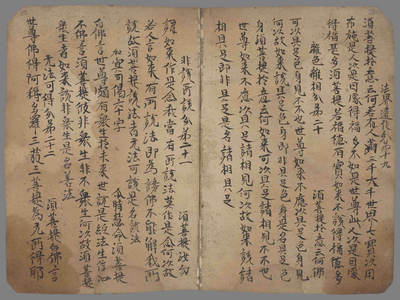 法界通化分第十九
須菩提於意云何若有人滿三千大千世界七寶以用
布施是人以是因緣得福多不如是世尊此人以是因緣
得福甚多須菩提若福德有實如來不說得福德多
離色離相分第二十 須菩提於意云何佛
可以具足色身見不不也世尊如來不應以具足色身見
何以故如來說具足色身即非具足色身是名具足色
身須菩提於意云何如來可以具足諸相見不不也
世尊如來不應以具足諸相見何以故如來說諸
相具足即非具足是名諸相具足
非說所說分第二十一 須菩提汝勿
謂如來作是念我當有所說法莫作是念何以故
若人言如來有所說法即為謗佛不能解我所
說故須菩提說法者無法可說是名說法
六十字 爾時慧命須菩提
白佛言世尊頗有眾生於未來世說是經法生信心
不佛言須菩提彼非眾生非不眾生何以故須菩提
眾生者如來說非眾生是名
無法可得分第二十二 須菩提白佛言
世尊佛得阿耨多羅三藐三菩提為無所得耶